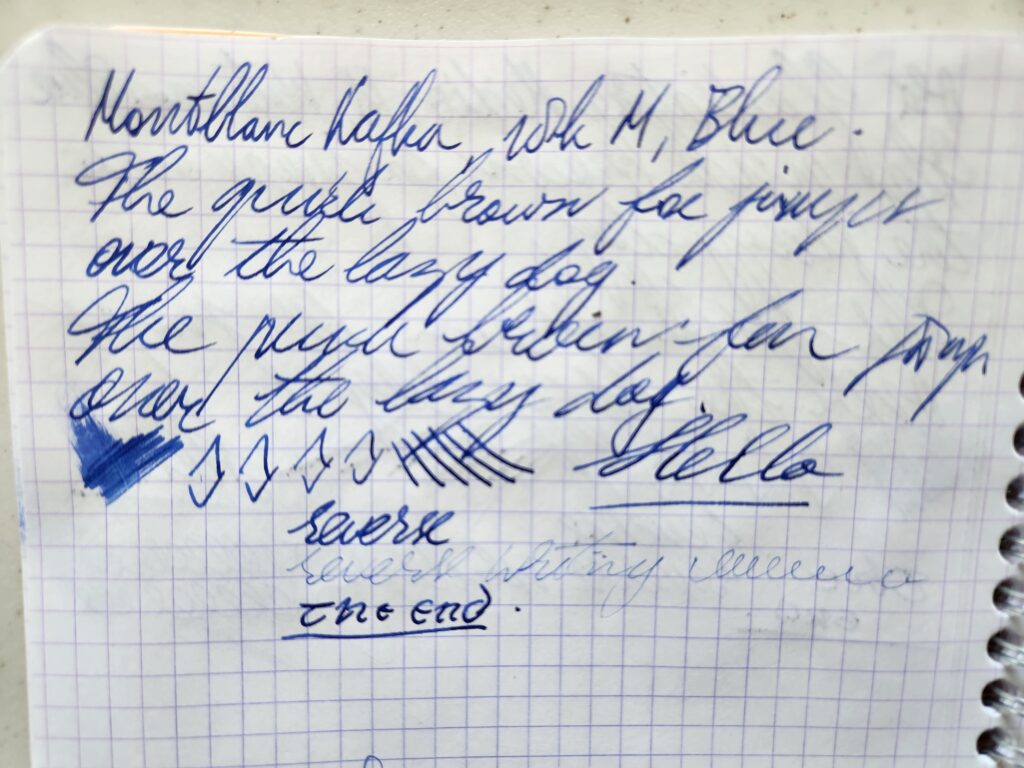 Montblanc Kafka, 18k M, Blue.
The quick brown fox jumps
over the lazy dog.
The quick brown fox jumps
over the lazy dog.
Hello
reverse
reverse writing
The End.